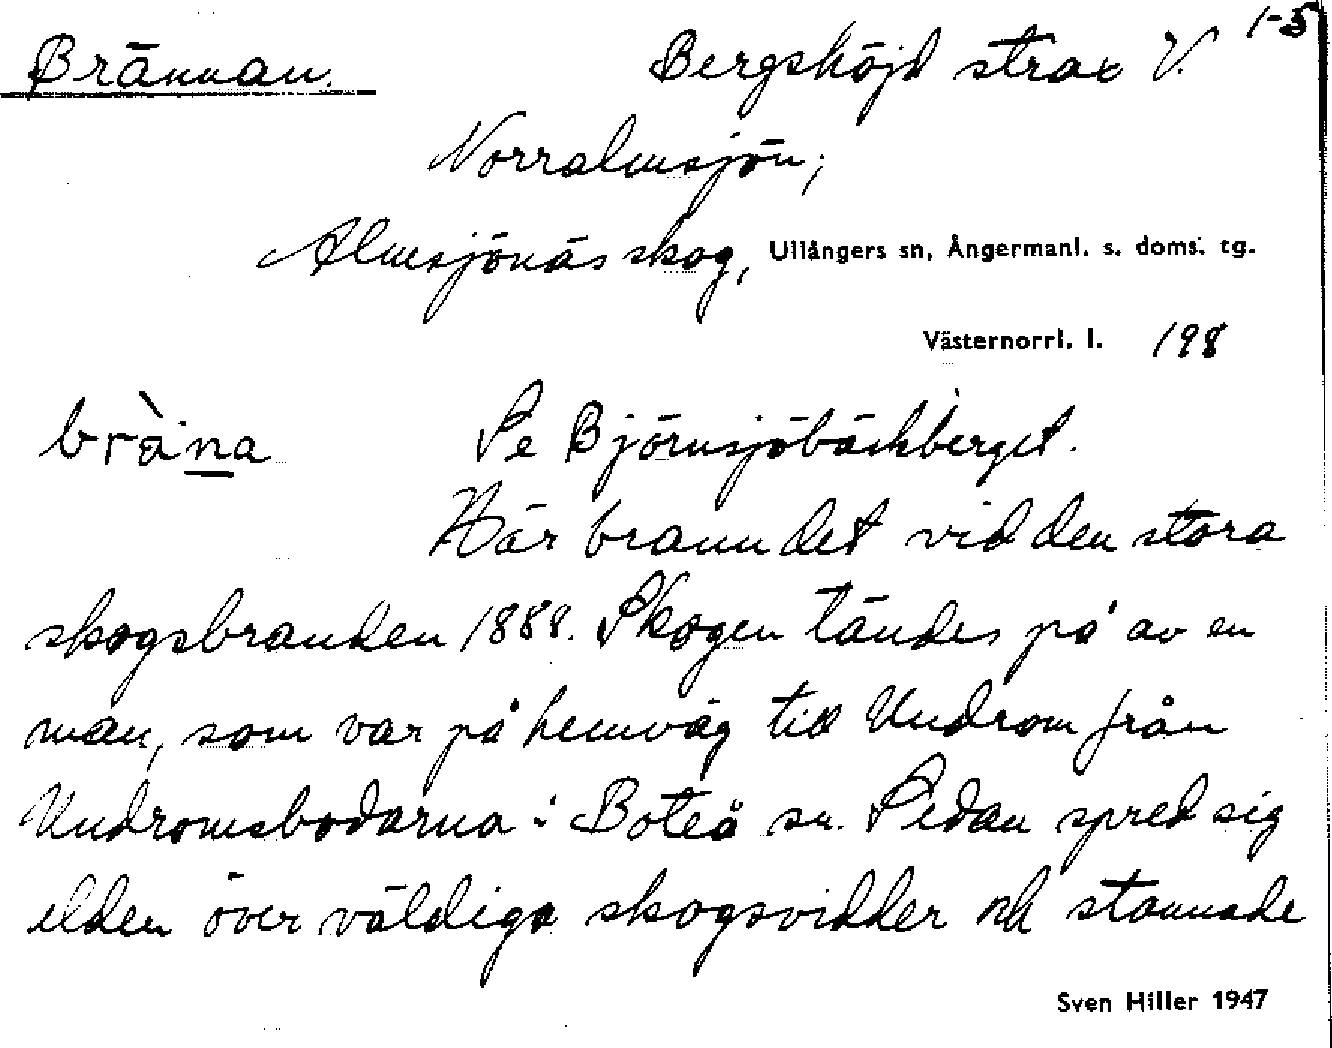 1-5
Brännan. Bergshöjd strax V.
Norralmsjön;
Almsjönäs skog, Ullångers sn, Ångermanl. s. doms. tg.
Västernorrl. l. 198
brä̀na Se Björnsjöbäckberget.
Här brann det vid den stora
skogsbranden 1888. Skogen tändes på av en
man, som var på hemväg till Undrom från
Undromsbodarna i Boteå sn. Sedan spred sig
elden över väldiga skogsvidder och stannade
Sven Hiller 1947